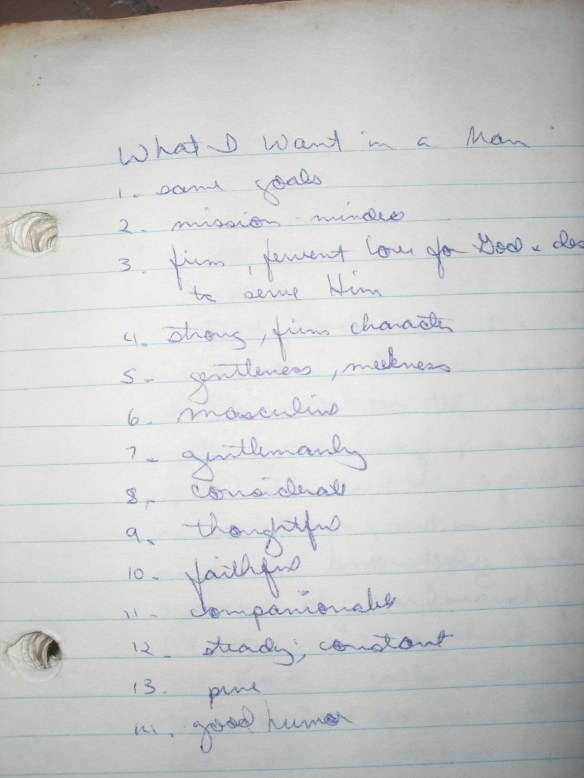 What I Want in a Man
1. same goals
2. mission minded
3. firm, fervent love for God & des
to serve Him
4. strong, firm character
5. gentleness, meekness
6. masculine
7. gentlemanly
8. considerate
9. thoughtful
10. faithful
11. companionable
12. steady, constant
13. pure
14. good humor